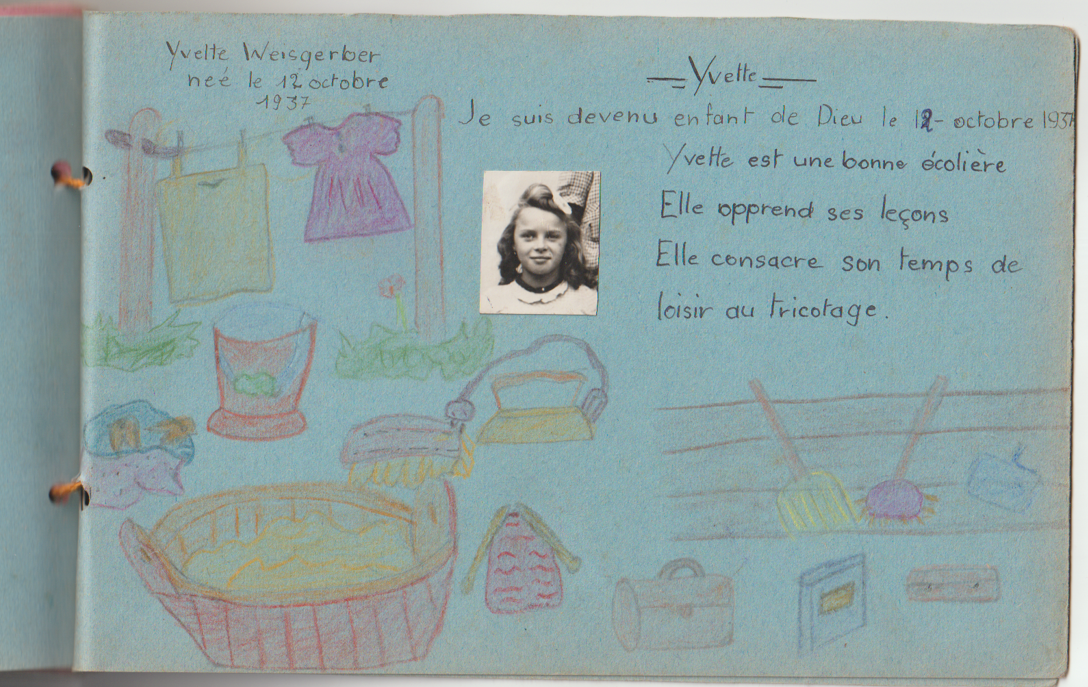 Yvette Weisgerber
neé le 12 octobre
1937
Yvette
Je suis devenu enfant de Dieu le 12 - octobre 1937
Yvette est une bonne écolière
Elle opprend ses leçons
Elle consacre son temps de
loisir au tricotage.